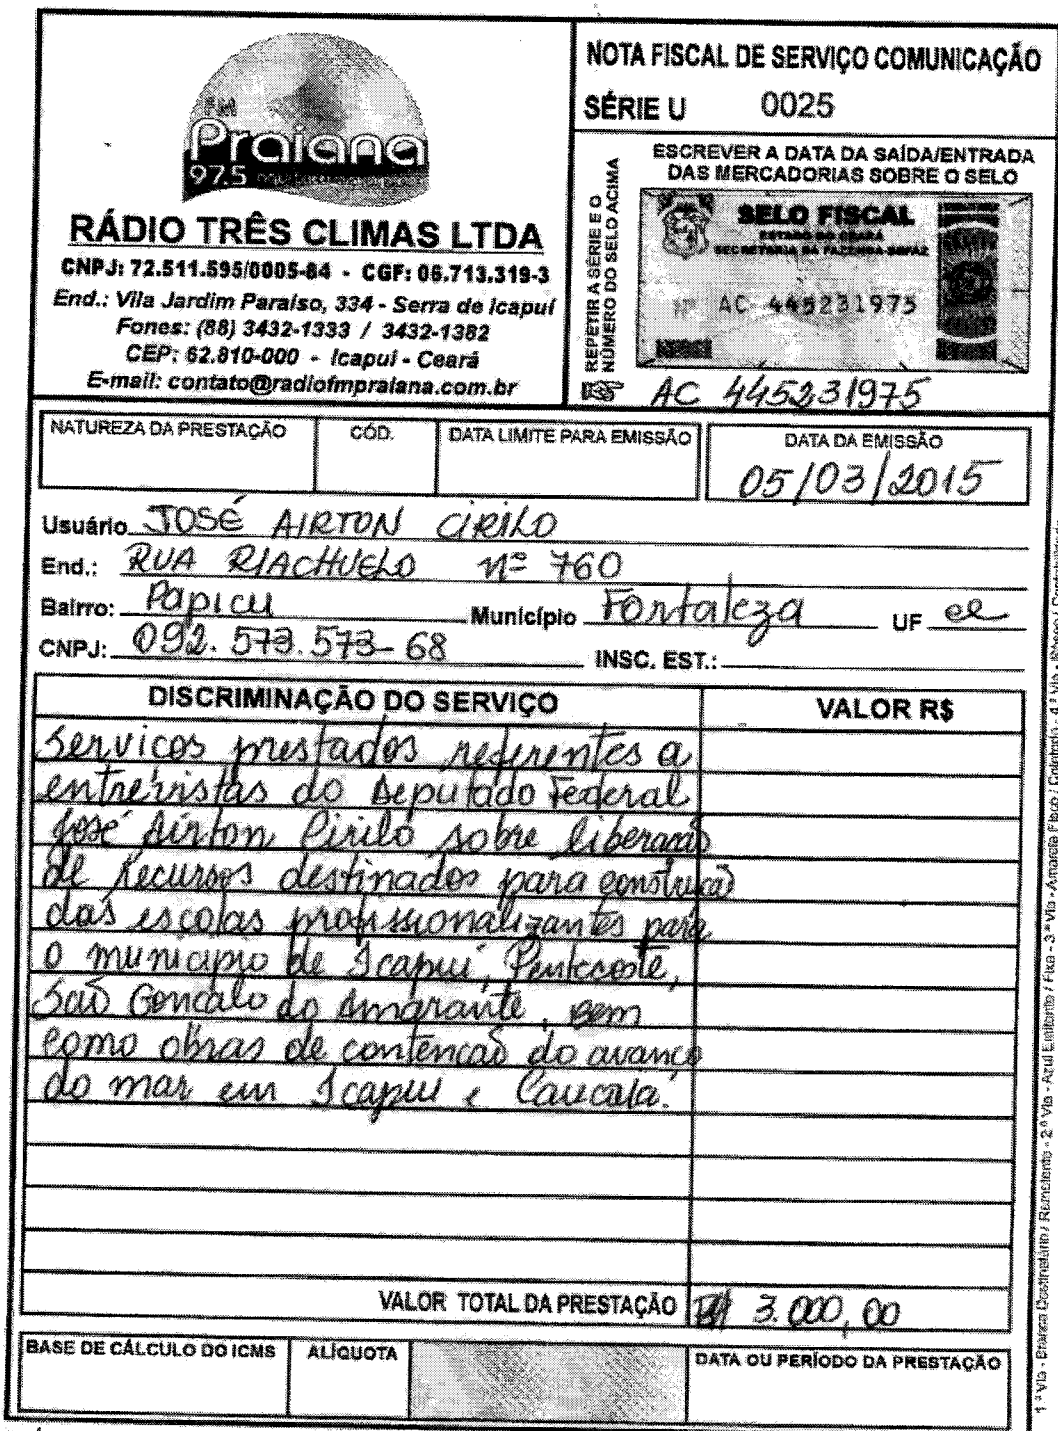 FM
Praiana
97.5
RÁDIO TRÊS CLIMAS LTDA
CNPJ: 72.511.595/0005-84 - CGF: 06.713.319-3
End.: Vila Jardim Paraíso, 334 - Serra de Icapuí
Fones: (88) 3432-1333 / 3432-1382
CEP: 62.810-000 - Icapuí - Ceará
E-mail: contato@radiofmpraiana.com.br
NOTA FISCAL DE SERVIÇO COMUNICAÇÃO
SÉRIE U 0025
ESCREVER A DATA DA SAÍDA/ENTRADA
DAS MERCADORIAS SOBRE O SELO
REPETIR A SÉRIE E O
NÚMERO DO SELO ACIMA
SELO FISCAL
ESTADO DO CEARÁ
SECRETARIA DA FAZENDA-SEFAZ
Nº AC 445231975
AC 445231975
NATUREZA DA PRESTAÇÃO
CÓD.
DATA LIMITE PARA EMISSÃO
DATA DA EMISSÃO
05/03/2015
Usuário JOSÉ AIRTON CIRILO
End.: RUA RIACHUELO nº 760
Bairro: Papicu Município Fortaleza UF ce
CNPJ: 092.573.573-68 INSC. EST.:
DISCRIMINAÇÃO DO SERVIÇO VALOR R$
Servicos prestados referentes a
entrevistas do Deputado Federal
José Airton Cirilo sobre liberacão
de Recursos destinados para construcão
das escolas profissionalizantes para
o municipio de Icapui, Pentecoste,
São Goncalo do Amarante, bem
como obras de contencão do avanço
do mar em Icapui e Caucaia.
VALOR TOTAL DA PRESTAÇÃO R$ 3.000,00
BASE DE CÁLCULO DO ICMS
ALÍQUOTA
DATA OU PERÍODO DA PRESTAÇÃO
1.ª Via - Branca Destinatário / Remetente - 2.ª Via - Azul Emitente / Fixa - 3.ª Via - Amarela Fisco / Coletoria - 4.ª Via - Contabilidade